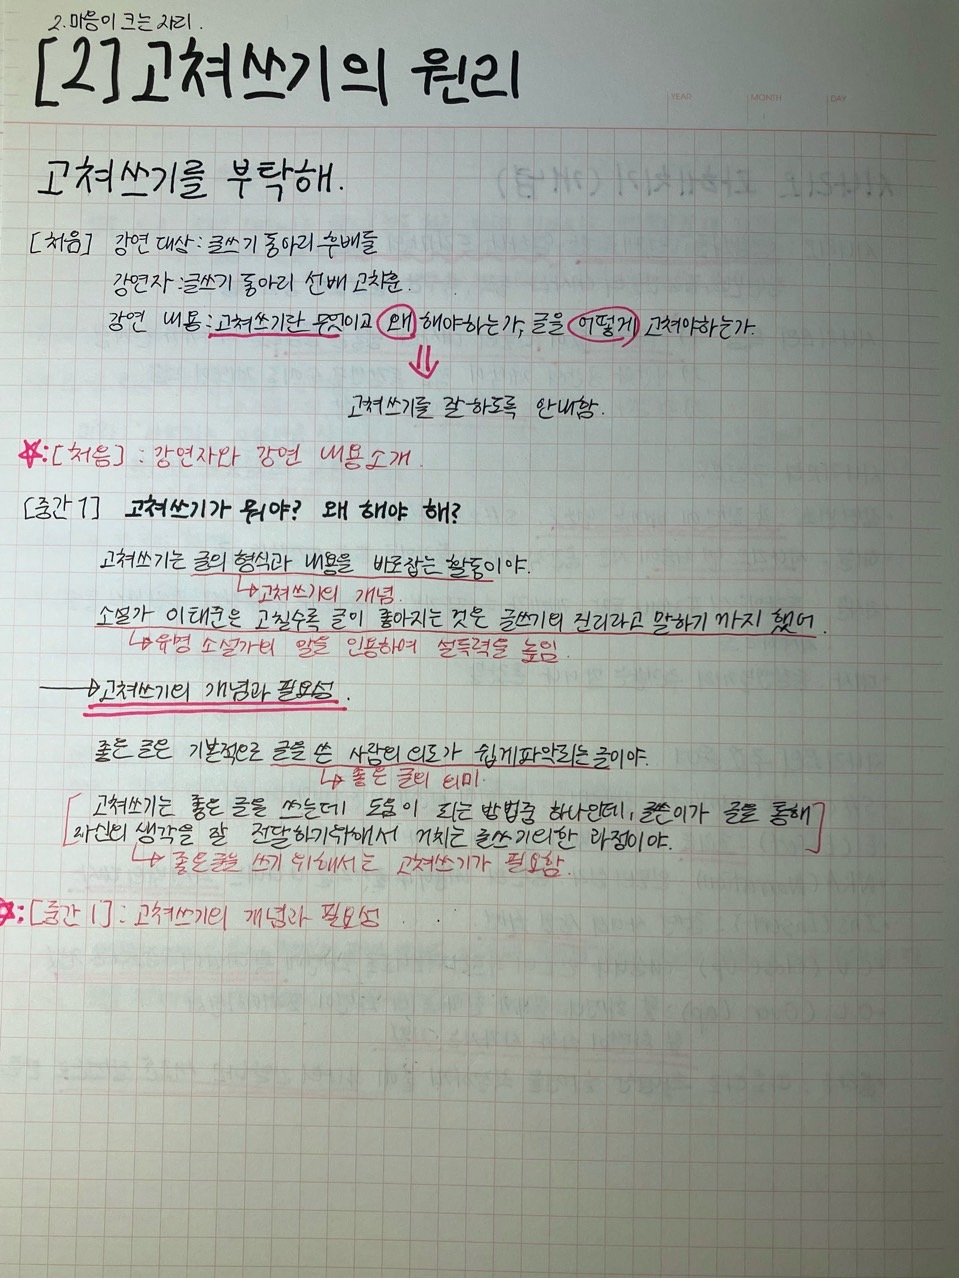 2. 마음이 크는 자리.
[2] 고쳐쓰기의 원리
YEAR MONTH DAY
고쳐쓰기를 부탁해.
[처음] 강연 대상 : 글쓰기 동아리 후배들
강연자 : 글쓰기 동아리 선배 고차훈.
강연 내용 : 고쳐쓰기란 무엇이고 왜 해야하는가, 글을 어떻게 고쳐야하는가.
⇓
고쳐쓰기를 잘하도록 안내함.
☆:[처음] : 강연자와 강연 내용소개.
[중간1] 고쳐쓰기가 뭐야? 왜 해야 해?
고쳐쓰기는 글의 형식과 내용을 바로잡는 활동이야.
↳고쳐쓰기의 개념.
소설가 이태준은 고칠수록 글이 좋아지는 것은 글쓰기의 진리라고 말하기 까지 했어.
↳유명 소설가의 말을 인용하여 설득력을 높임.
→고쳐쓰기의 개념과 필요성.
좋은 글은 기본적으로 글을 쓴 사람의 의도가 쉽게파악되는글이야.
↳ 좋은 글의 의미.
[고쳐쓰기는 좋은 글을 쓰는데 도움이 되는 방법중 하나인데, 글쓴이가 글을 통해
자신의 생각을 잘 전달하기위해서 거치는 글쓰기의한 과정이야.]
↳ 좋은글을 쓰기 위해서는 고쳐쓰기가 필요함.
☆:[중간1] : 고쳐쓰기의 개념과 필요성